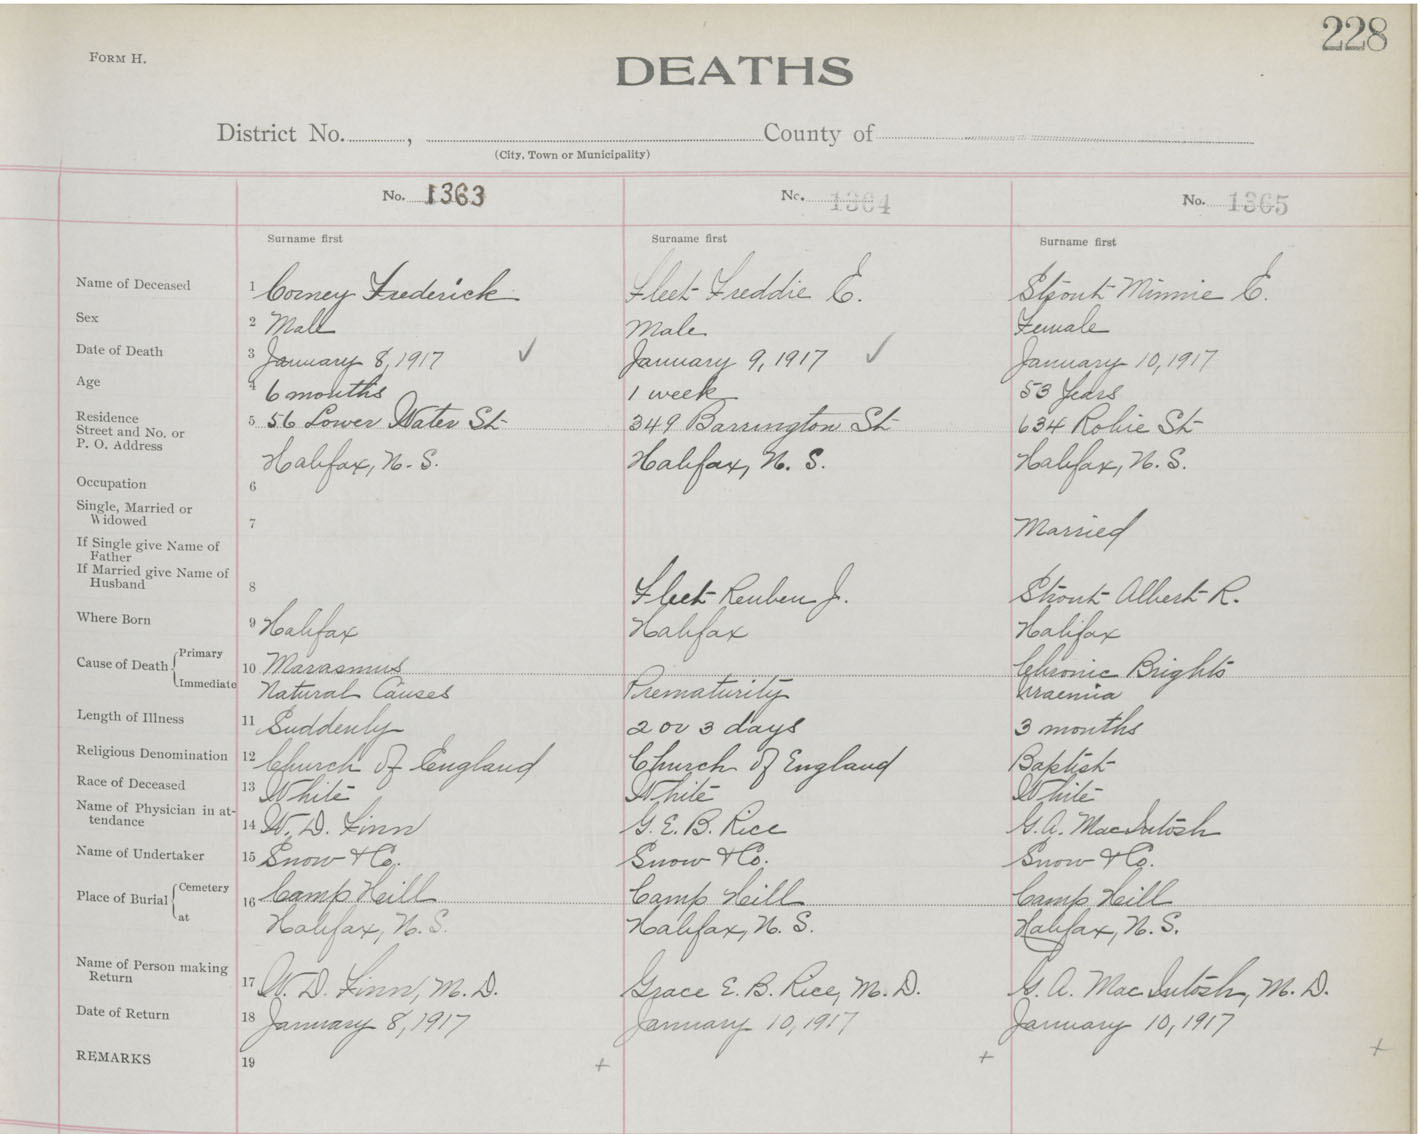 228
FORM H.
DEATHS
District No. , County of
(City, Town or Municipality)
No. 1363 No. 1364 No. 1365
Surname first Surname first Surname first
Name of Deceased 1 Corney Frederick Fleet Freddie E. Strout Minnie E.
Sex 2 Male Male Female
Date of Death 3 January 8, 1917 ✓ January 9, 1917 ✓ January 10, 1917
Age 4 6 months 1 week 53 Years
Residence
Street and No. or 5 56 Lower Water St 349 Barrington St 634 Robie St
P. O. Address
Halifax, N. S. Halifax, N. S. Halifax, N. S.
Occupation 6
Single, Married or
Widowed 7 Married
If Single give Name of
Father
If Married give Name of
Husband 8 Fleet Reuben J. Strout Albert R.
Where Born 9 Halifax Halifax Halifax
Cause of Death Primary 10 Marasmus Chronic Brights
Immediate Natural Causes Prematurity Uraemia
Length of Illness 11 Suddenly 2 or 3 days 3 months
Religious Denomination 12 Church of England Church of England Baptist
Race of Deceased 13 White White White
Name of Physician in at-
tendance 14 W. D. Finn G. E. B. Rice G. A. MacIntosh
Name of Undertaker 15 Snow & Co. Snow & Co. Snow & Co.
Place of Burial Cemetery 16 Camp Heill Camp Heill Camp Heill
at Halifax, N. S. Halifax, N. S. Halifax, N. S.
Name of Person making
Return 17 W. D. Finn, M. D. Grace E. B. Rice, M. D. G. A. MacIntosh, M. D.
Date of Return 18 January 8, 1917 January 10, 1917 January 10, 1917
REMARKS 19 + + +